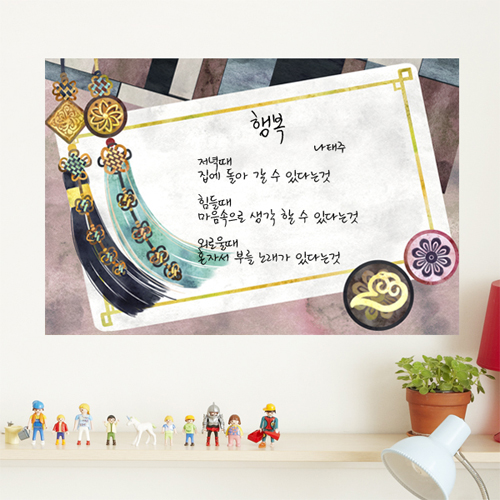 행복
나태주
저녁때
집에 돌아 갈 수 있다는것
힘들때
마음속으로 생각 할 수 있다는것
외로울때
혼자서 부를 노래가 있다는것